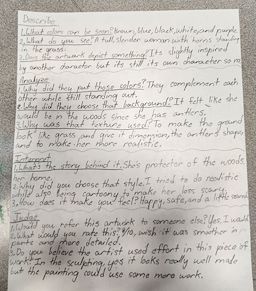 Describe
1. What colors can be seen? Brown, blue, black, white, and purple
2. What do you see? A tall, slender woman with horns standing
in the grass.
3. Does the artwork depict something? It's slightly inspired
by another character but its still its own character so no
Analyze
1. Why did they put those colors? They complement each
other while still standing out.
2. Why did they choose that background? It felt like she
would be in the woods since she has antlers.
3. Why was that texture used? To make the ground
look like grass and give it dimension, the antlers shape,
and to make her more realistic.
Interpret
1. What's the story behind it. She's protector of the woods,
her home.
2. Why did you choose that style. I tried to do realistic
while also being cartoony to make her less scary.
3. How does it make you feel? Happy, safe, and a little
Judge
1. Would you refer this artwork to someone else? Yes, I would
2. What would you rate this? 8/10, wish it was smoother in
parts and more detailed.
3. Do you believe the artist used effort in this piece of
work? In the sculpting yes it looks really well made
but the painting could use some more work.